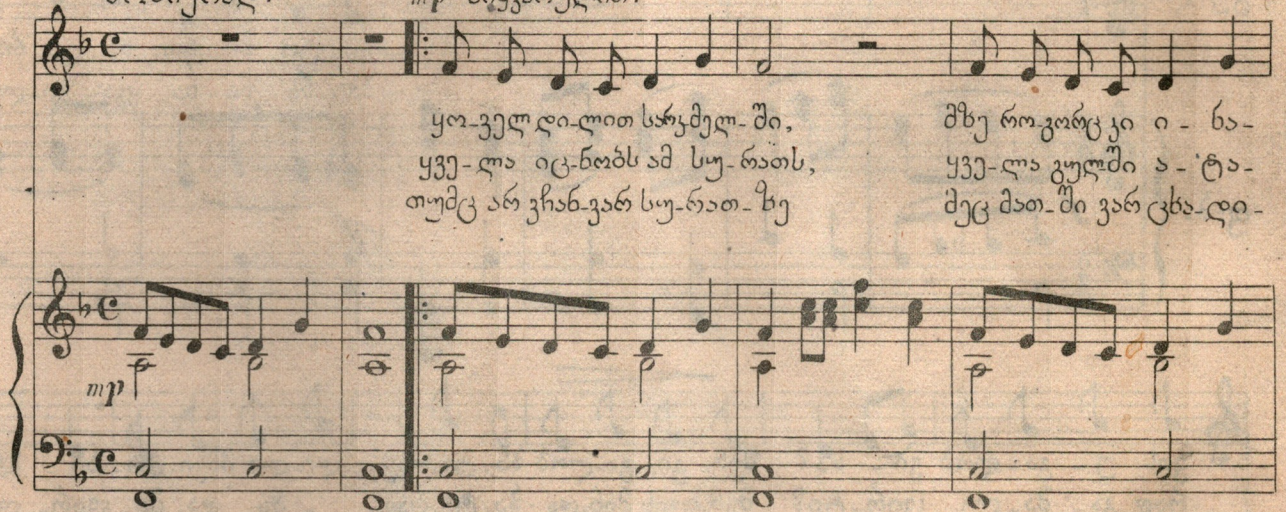 mp
ყო-ველ დი-ლით სარკმელ-ში, მზე რო-გორც კი ი-ნა-
ყვე-ლა იც-ნობს ამ სუ-რათს, ყვე-ლა გულში ა-ტა-
თუმც არ ვჩან-ვარ სუ-რათ-ზე მეც მათ-ში ვარ ცხა-დი-
mp